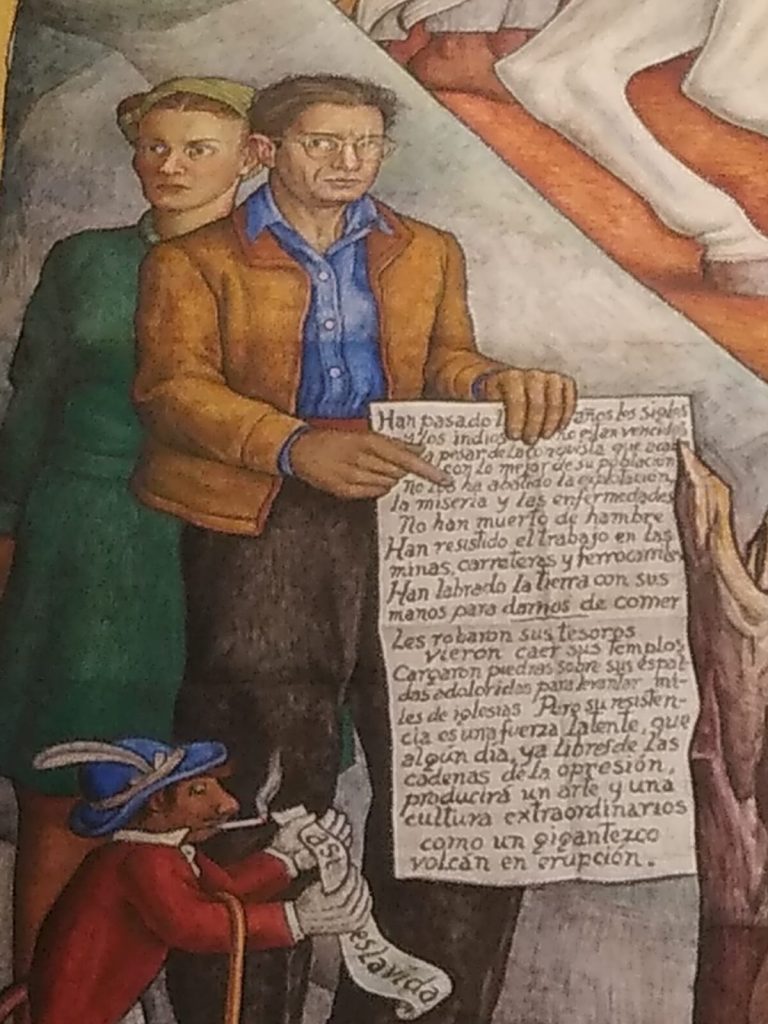 Han pasado l años los siglos
y los indios no estan vencidos
a pesar de la conquista que acabó
con lo mejor de su población
No los ha abatido la explotación,
la miseria y las enfermedades
No han muerto de hambre
Han resistido el trabajo en las
minas, carreteras y ferrocarriles
Han labrado la tierra con sus
manos para darnos de comer
Les robaron sus tesoros
vieron caer sus templos
Cargaron piedras sobre sus espal-
das adoloridas para levantar mi-
les de iglesias Pero su resisten-
cia es una fuerza latente, que
algún día, ya libres de las
cadenas de la opresión,
producirá un arte y una
cultura extraordinarios
como un gigantezco
volcán en erupción.
asi
es la vida